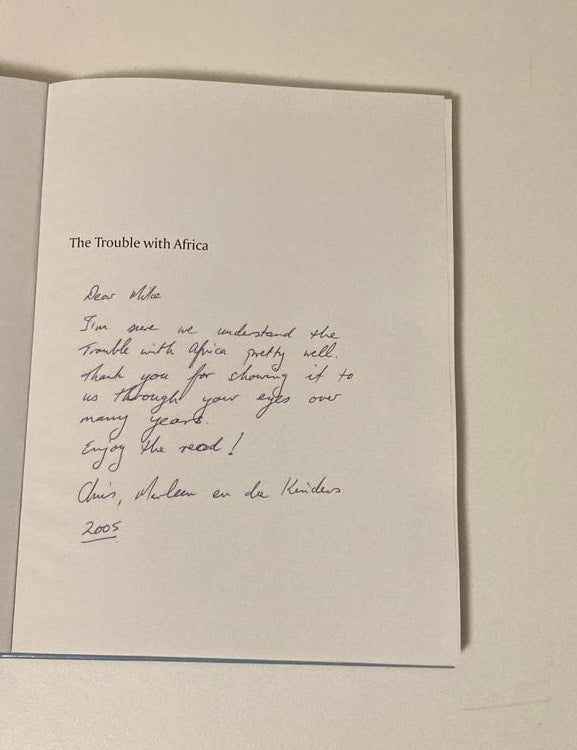 The Trouble with Africa
Dear Mike
I'm sure we understand the
Trouble with Africa pretty well.
Thank you for showing it to
us through your eyes over
many years.
Enjoy the read!
Chris, Marleen en die Kinders
2005